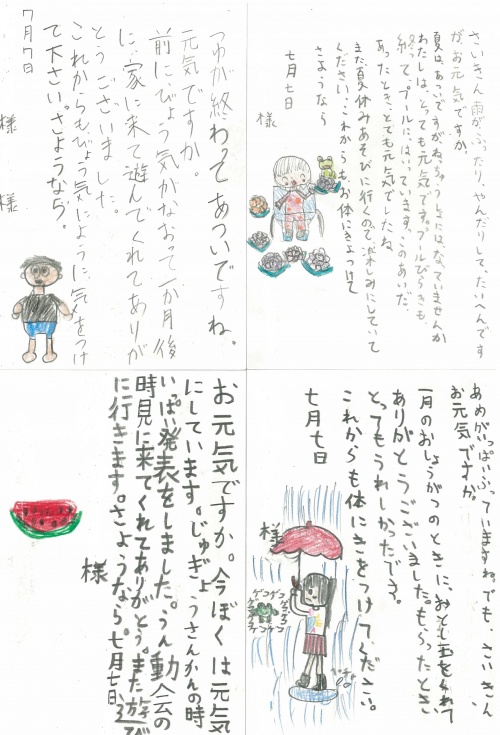 さいきん雨がふったり、やんだりして、たいへんです
がお元気ですか。
夏は、あついですがねっちゅうしょうにはなっていませんか
わたしは、とっても元気です。プールびらきも
終って、プールにはいっています。このあいだ
あったときとてもたのしかったでしたね
また夏休みあそびに行くのでたのしみにしていて
ください。これからも、お体にきをつけて
さようなら
七月七日
様
つゆが終わってあついですね。
元気ですか。
前にびょう気がなおって一か月後
に、家に来て遊んでくれてありが
とうございました。
これからもびょう気にように、気をつけ
て下さい。さようなら。
7月7日
様
様
あめがいっぱいふっていますね。でも、さいきん
お元気ですか。
一月のおしょうがつのときに、おとし玉をくれて
ありがとうございました。もらったとき
とってもうれしかったです。
これからも体にきをつけてください。
七月七日
様
ゲコゲコ
お元気ですか。今ぼくは元気
にしています。じゅぎょうさんかんの時
いっぱい発表をしました。うん動会の
時見に来てくれてありがとう。また遊び
に行きます。さようなら。七月七日
様